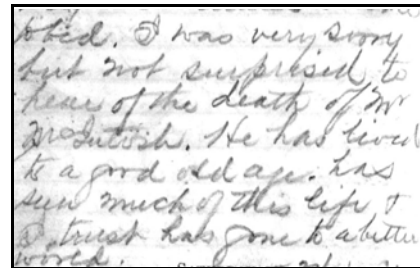 I was very sorry
but not surprised to
hear of the death of Mr
McIntosh. He has lived
to a good old age. has
seen much of this life &
I trust has gone to a better
world.